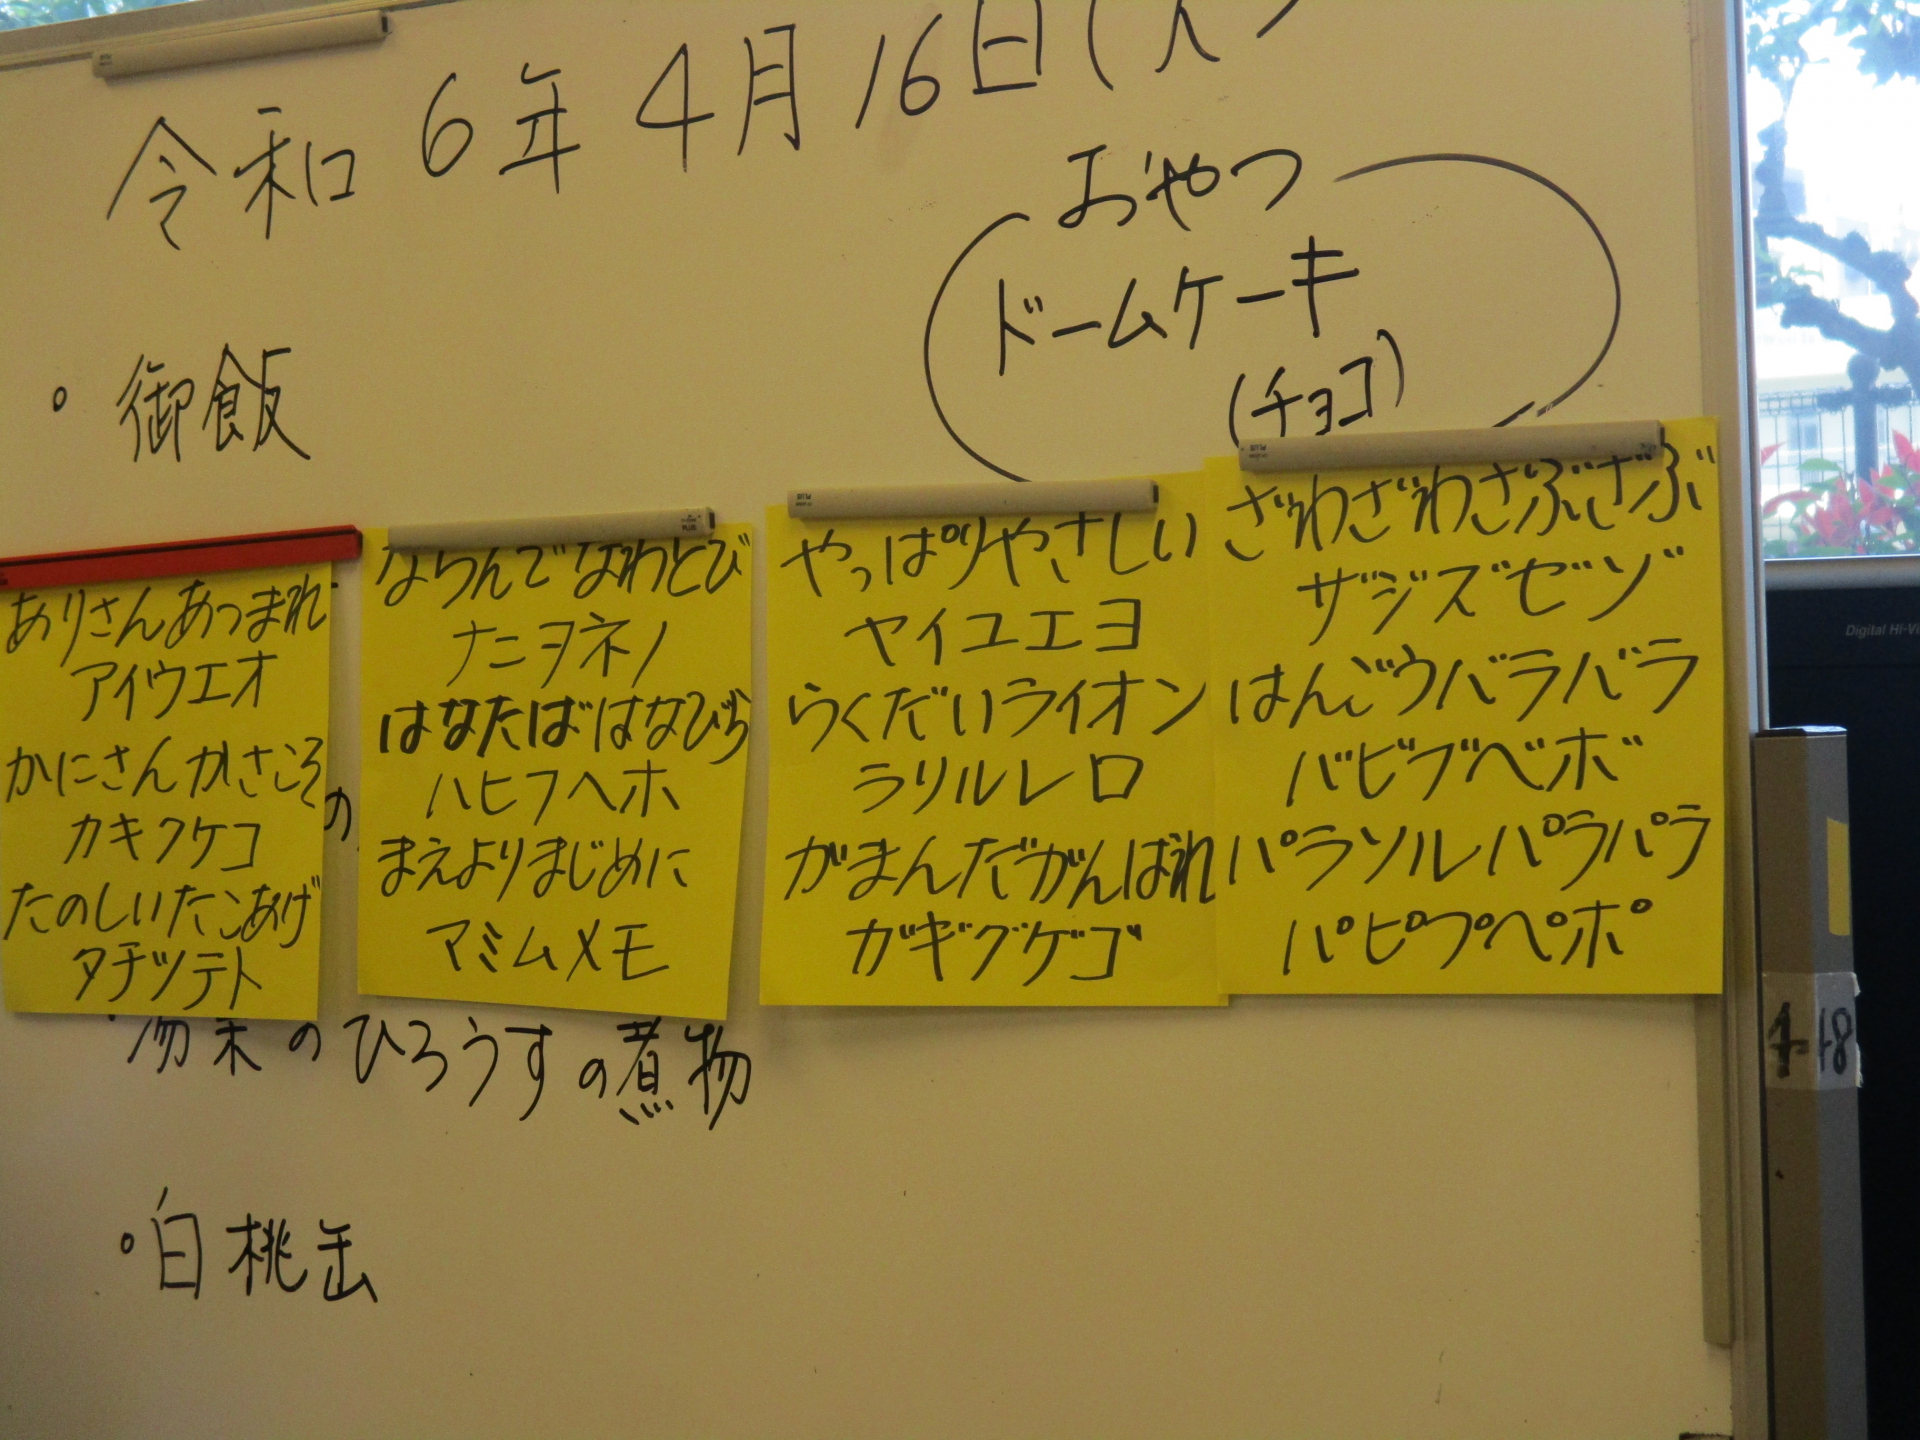 令和6年4月16日(火)
おやつ
ドームケーキ
(チョコ)
・御飯
ありさんあつまれ
アイウエオ
かにさんかさこそ
カキクケコ
たのしいたこあげ
タチツテト
の
ならんでなわとび
ナニヌネノ
はなたばはなびら
ハヒフヘホ
まえよりまじめに
マミムメモ
やっぱりやさしい
ヤイユエヨ
らくだいライオン
ラリルレロ
がまんだがんばれ
ガギグゲゴ
ざわざわざぶざぶ
ザジズゼゾ
ばんごうバラバラ
バビブベボ
パラソルパラパラ
パピプペポ
のひろうすの煮物
・白桃缶
PLUS
PLUS
PLUS
Digital Hi-Vi